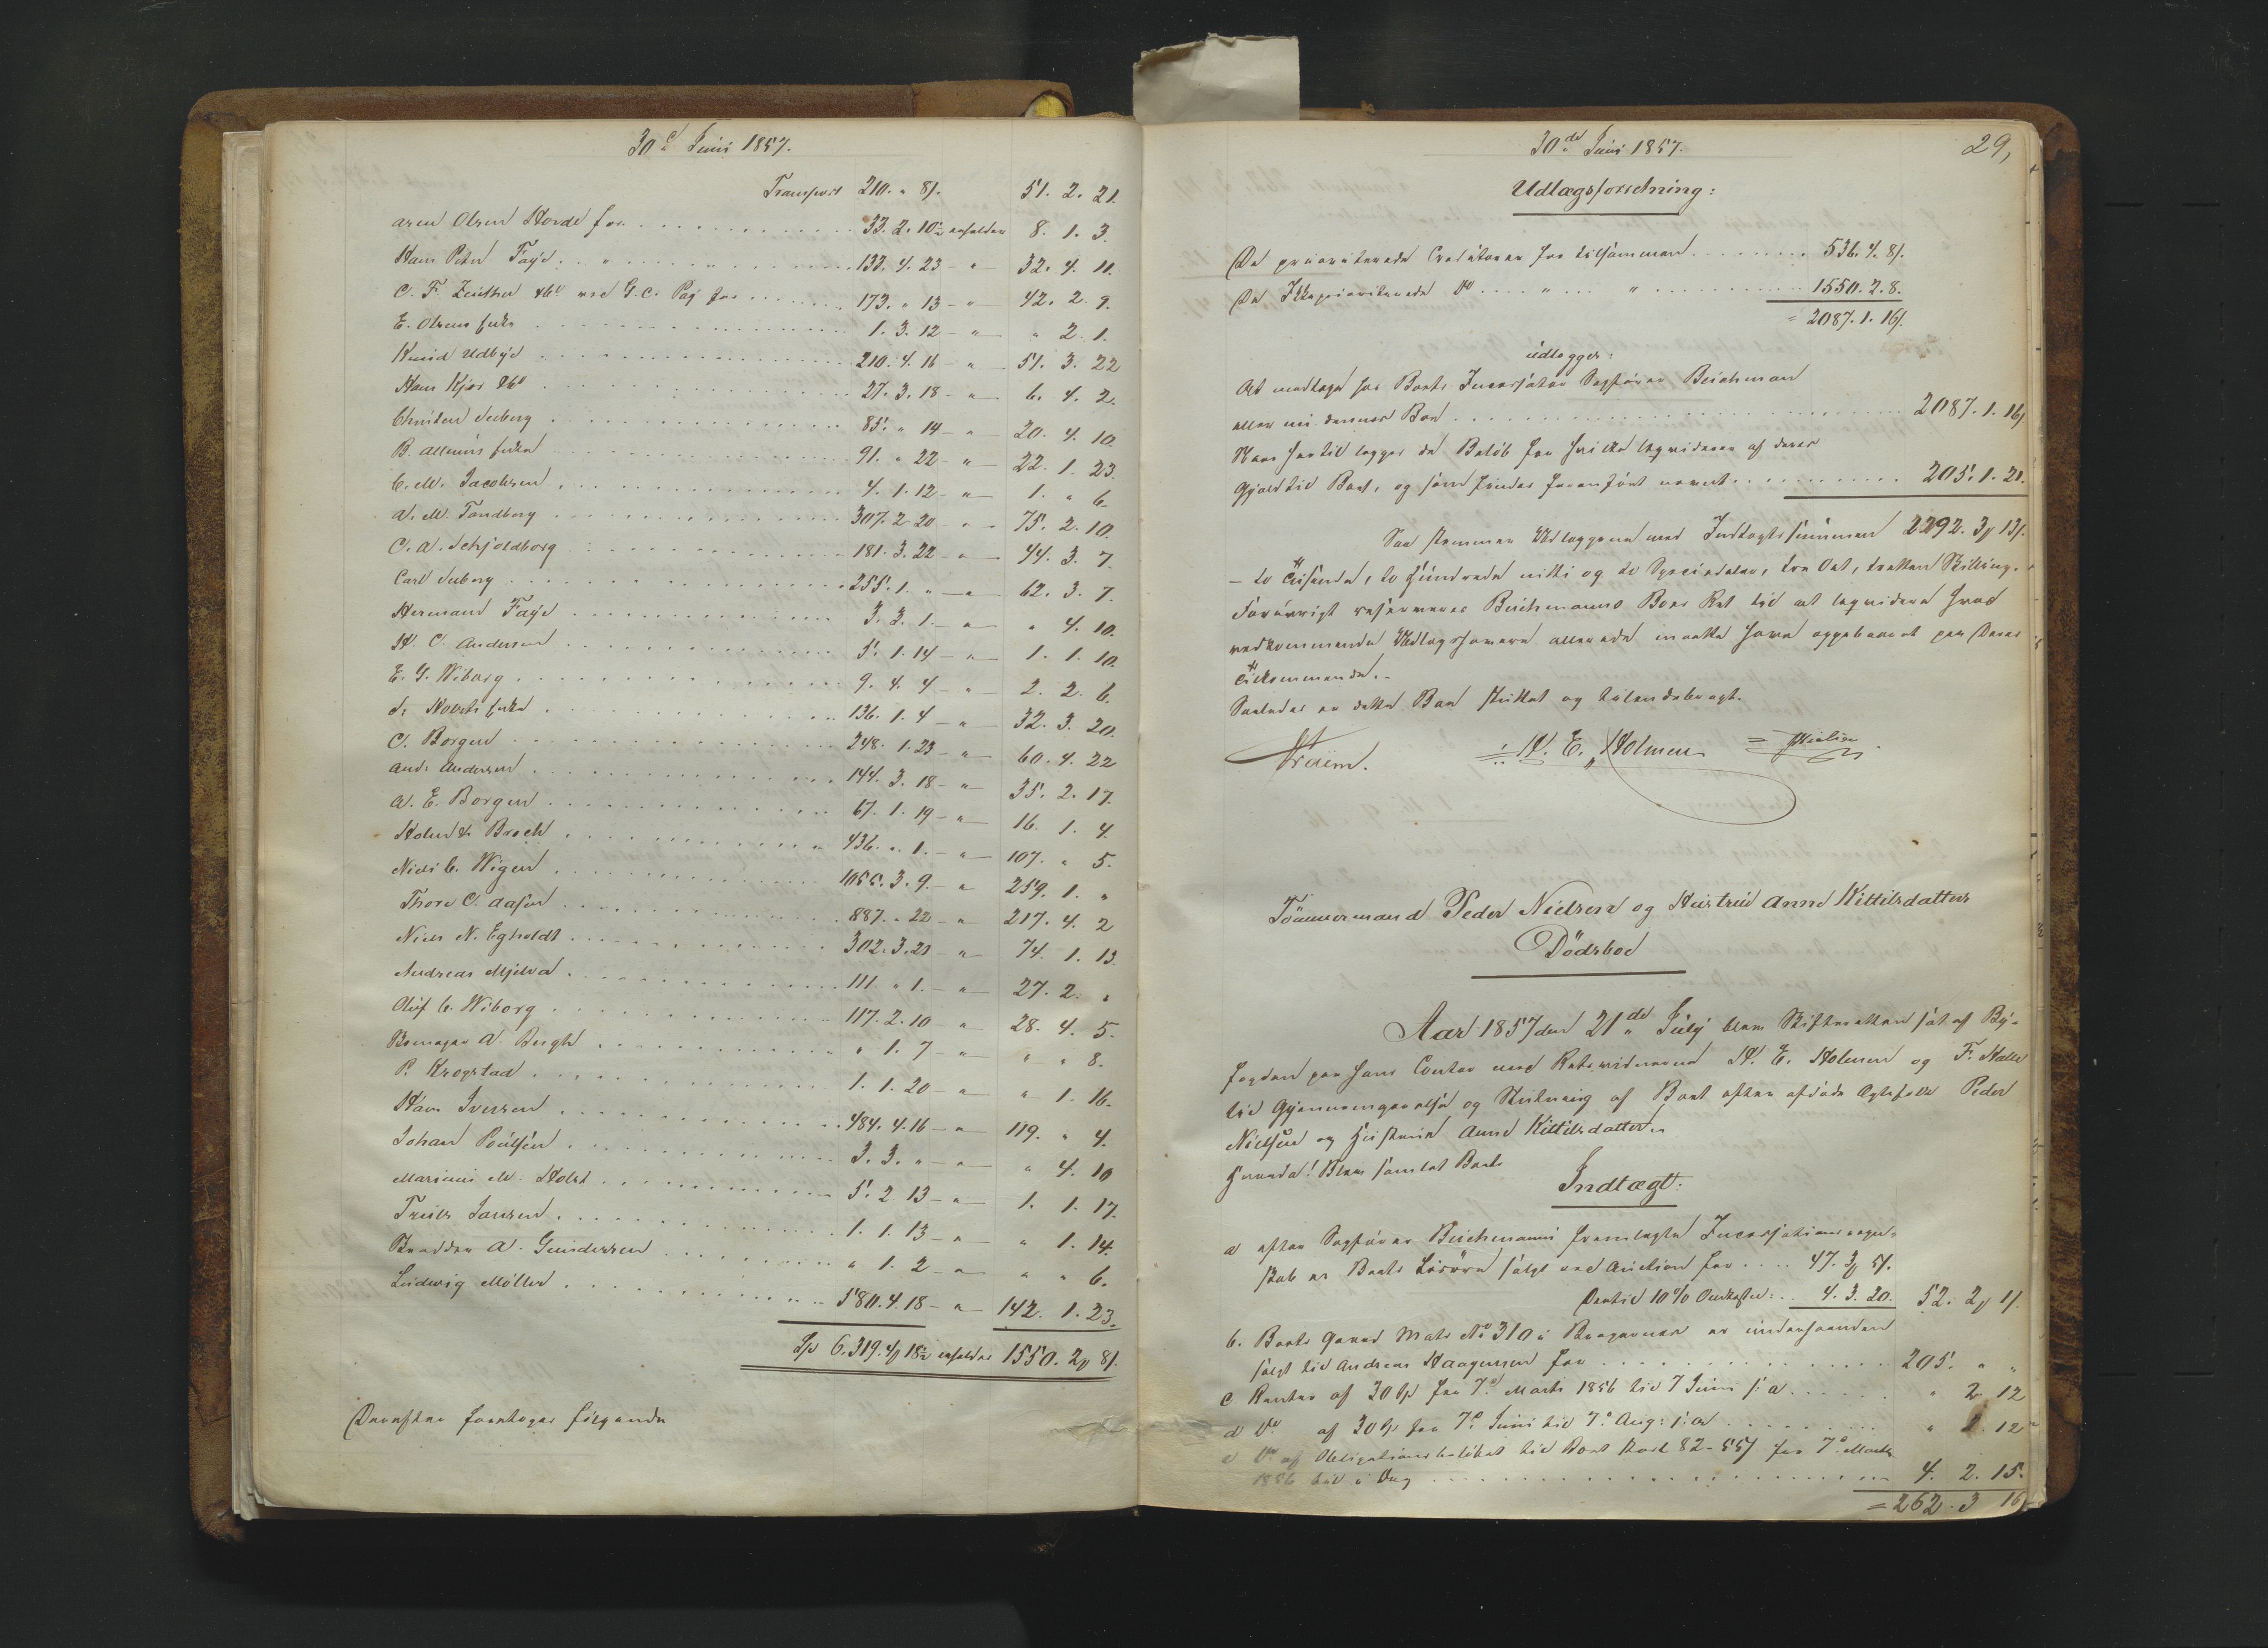 30d Juni 1857.
Transport 210. " 8ſ. 51. 2. 21.
Olsen Hovde for . . . 33. 2. 10 erholder 8. 1. 3.
Hans Peter Faye . . " . . . 133. 4. 23 - " - 32. 4. 11.
C. F. Zeuthen ved G. C. Pay for . . . 173. " 13 - " - 42. 2. 9.
E. Olsens Enke . . . 1. 3. 12 - " - " 2. 1.
Knud Udbye . . . 210. 4. 16 - " - 51. 3. 22
Hans Kjær . . . 27. 3. 18 - " - 6. 4. 2.
Christen Seeberg . . . 85. " 14 - " - 20. 4. 10.
B. Allums Enke . . . 91. " 22 - " - 22. 1. 23.
C. M. Jacobsen . . . 4. 1. 12 - " - 1. " 6.
A. M. Tandberg . . . 307. 2. 20 - " - 75. 2. 10.
C. A. Schjoldborg . . . 181. 3. 22 - " - 44. 3. 7.
Carl Seeberg . . . 255. 1. " - " - 62. 3. 7.
Hermand Faye . . . 3. 3. 1. - " - " 4. 10.
H. C. Andersen . . . 5. 1. 14 - " - 1. 1. 10.
E. G. Wiborg . . . 9. 4. 4 - " - 2. 2. 6.
Enke . . . 136. 1. 4 - " - 32. 3. 20.
C. Borgen . . . 248. 1. 23 - " - 60. 4. 22
And: Andersen . . . 144. 3. 18 - " - 35. 2. 17.
A. E. Borgen . . . 67. 1. 19 - " - 16. 1. 4.
Holm & Broch . . . 436. " 1. - " - 107. " 5.
Niels C. Wigen . . . 1055. 3. 9. - " 259. 1. "
Thore C. Aasen . . . 887. " 22 - " - 217. 4. 2
Niels N. Egholdt . . . 302. 3. 21 - " - 74. 1. 13.
Andreas Mjelva . . . 111. " 1. - " - 27. 2. "
Oluf C. Wiborg . . . 117. 2. 10 - " 28. 4. 5.
A. Bergh . . . " 1. 7 - " - " " 8.
P. Krogstad . . . 1. 1. 20 - " - " 1. 16.
Hans Iversen . . . 484. 4. 16 - " - 119. " 4.
Johan Poulsen . . . 3. 3. " - " - " 4. 10
Marinus M. Holst . . . 5. 2. 13 - " - 1. 1. 17.
Truls Jansen . . . 1. 1. 13 - " - " 1. 14.
A. Gundersen . . . " 1. 2 - " - " " 6.
Ludwig Møller . . . 580. 4. 18 - " - 142. 1. 23.
Spd 6,319. 4 18 erholder 1550. 2 8ſ.
Derefter foretoges følgende
30de Juni 1857. 29,
Udlægsforretning:
De prioriterede Creditorer for tilsammen . . . 536. 4. 8ſ.
De Ikkeprioriterede Do . . . " . . . " . . . 1550. 2. 8.
= 2087. 1. 16ſ.
udlægges:
At modtage hos Boets Incassator Sagfører Beichman
eller nu dennes Boe . . . 2087. 1. 16ſ
Naar hertil lægges de Beløb for hvilke liqvideres af deres
Gjæld til Boet, og som findes foranført nævnt . . . 205. 1. 21.
Saa stemmer Udlæggene med Indtægtssummen 2292. 3 13ſ.
- to Tusende, to Hundrede nitti og to Speciedaler, tre Ort, tretten Skilling.
Forøvrigt reserveres Beichmanns Boes Ret til at liqvidere hvad
vedkommende Udlægshavere allerede maatte have oppebaaret paa Deres
Tilkommende. -
Saaledes er dette Boe sluttet og tilendebragt.
H. E. Holmen
Tømmermand Peder Nielsen og Hustru Anne Kittilsdatters
Dødsboe
Aar 1857 den 21de July blev Skifteretten sat af By-
fogden paa hans Contor med Retsvidnerne H. E. Holmen og F. Halle
til Gjennemgaaelse og Slutning af Boet efter afdøde Ægtefolk Peder
Nielsen og Hustrue Anne Kittilsdatter.
Hvorda! Blev samlet Boets
Indtægt:
a efter Sagfører Beichmanns fremlagte Incassationsregn-
skab er Boets Løsøre solgt ved Auction for . . . 47. 3 5ſ.
Dertil 10% Omkoster: . . 4. 3. 20. 52. 2 1ſ.
b. Boets Gaard Mats No 310 i Bragernes er underhaanden
solgt til Andreas Haagensen for . . . 205. " "
c. Renter af 30 Spd fra 7d Marts 1856 til 7 Juni s: a . . . " 2 12
d Do af 30 Spd fra 7d Juni til 7d Aug: s: a . . . " 2 12
e Do af Obligationsbeløbet til Boet 82 - 55ſ fra 7d Marts
1856 til i Dag . . . 4. 2. 15.
= 262. 3 16